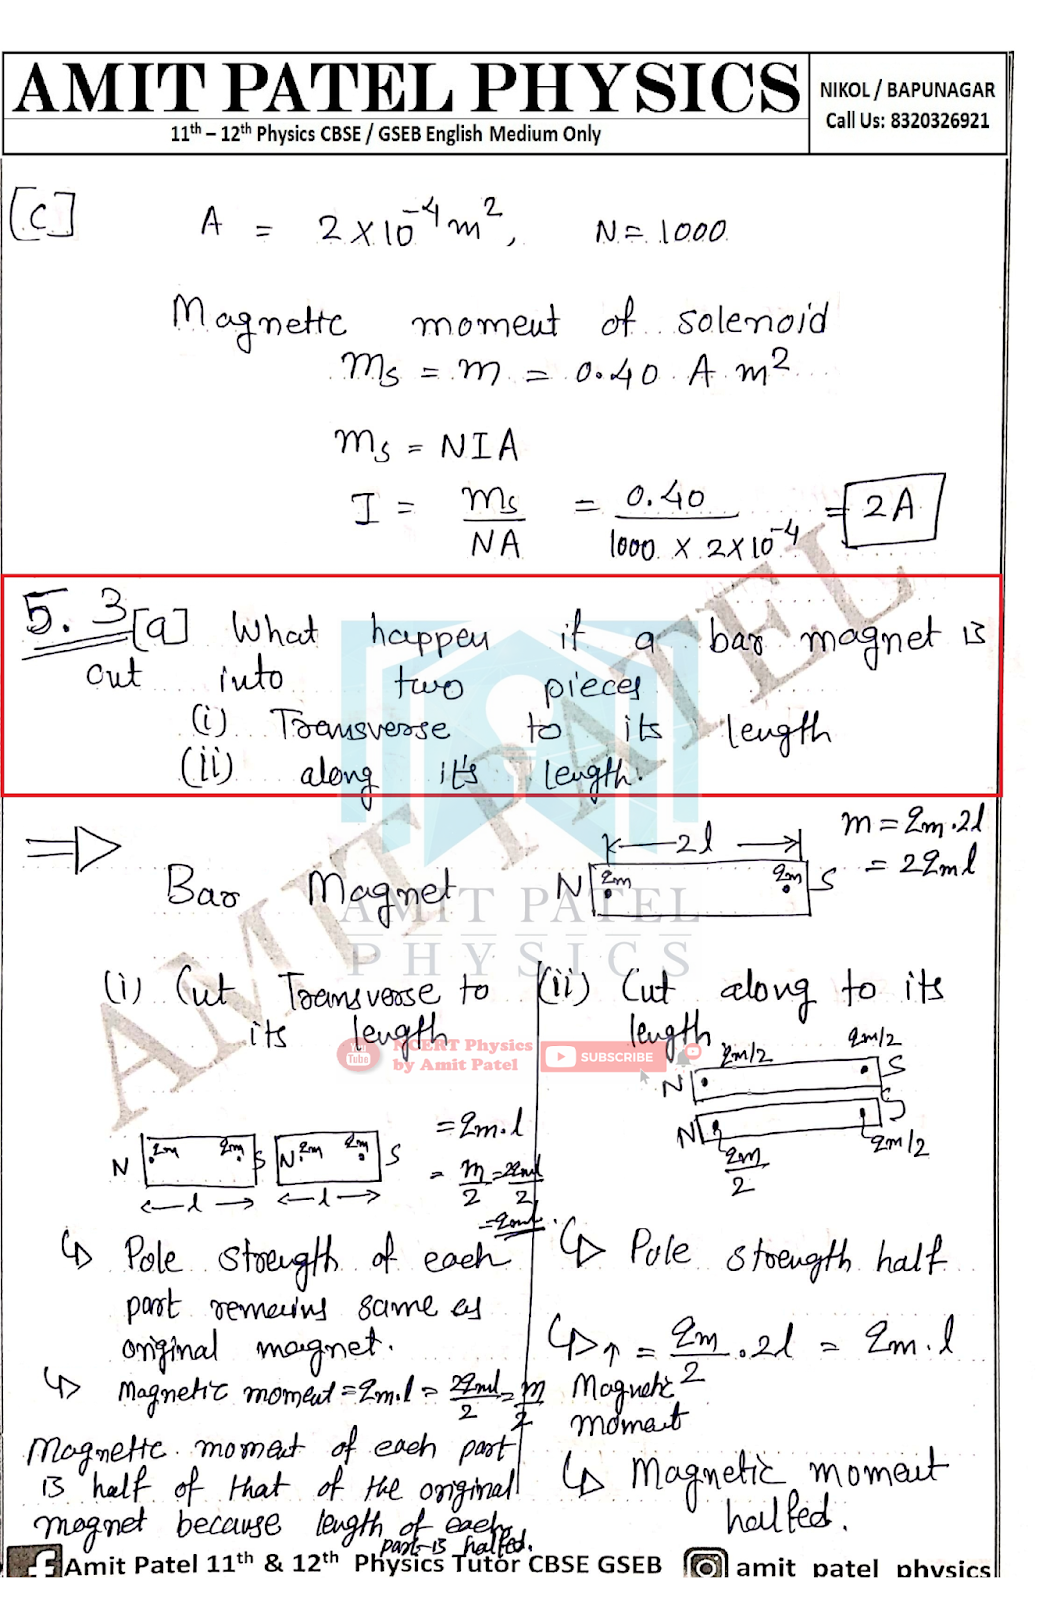 AMIT PATEL PHYSICS
11th – 12th Physics CBSE / GSEB English Medium Only
NIKOL / BAPUNAGAR
Call Us: 8320326921
[C] A = 2×10⁻⁴m², N = 1000
Magnetic moment of solenoid
ms = m = 0.40 A m²
ms = NIA
I = ms/NA = 0.40/1000 × 2×10⁻⁴ = 2A
5.3 [a] What happen if a bar magnet is
cut into two pieces
(i) Transverse to its length
(ii) along it's length.
⇒ Bar Magnet
N qm qm S
2l
m = qm.2l
= 2qml
AMIT PATEL
PHYSICS
AMIT PATEL
(i) Cut Transverse to
its length
NCERT Physics
by Amit Patel
You Tube
SUBSCRIBE
N qm qm S N qm qm S
l l
= qm.l
= m/2 = 2qml/2
= qml
↳ Pole strength of each
part remains same as
original magnet.
↳ Magnetic moment = qm.l = 2qml/2 = m/2
Magnetic moment of each part
is half of that of the original
magnet because length of each
part is halfed.
(ii) Cut along to its
length
qm/2 qm/2
N S
N S
qm/2 qm/2
↳ Pole strength half
↳ ↑ = qm/2 . 2l = qm.l
Magnetic
moment
↳ Magnetic moment
halfed.
Amit Patel 11th & 12th Physics Tutor CBSE GSEB
amit_patel_physics